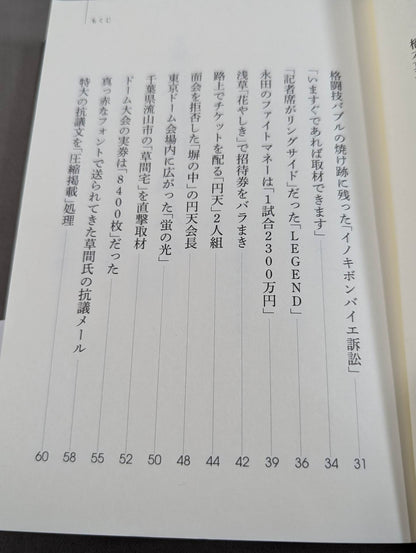 もくじ
格闘技バブルの焼け跡に残った「イノキボンバイエ訴訟」 31
「いますぐであれば取材できます」 34
「記者席がリングサイド」だった「LEGEND」 36
永田のファイトマネーは「1試合2300万円」 39
浅草「花やしき」で招待券をバラまき 42
路上でチケットを配る「円天」2人組 44
面会を拒否した「塀の中」の円天会長 48
東京ドーム会場内に広がった「蛍の光」 50
千葉県流山市の「草間宅」を直撃取材 52
ドーム大会の実券は「8400枚」だった 55
真っ赤なフォントで送られてきた草間氏の抗議メール 58
特大の抗議文を「圧縮掲載」処理 60